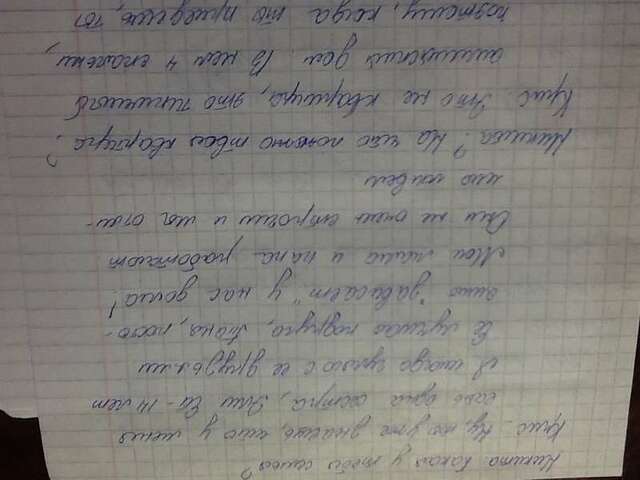 Никита. Какая у тебя семья?
Крис. Ну, ты уже знаешь, что у меня
есть одна сестра, Эми. Ей - 14 лет
Я иногда гуляю с ее друзьями
Ее лучшая подруга, Таня, посто-
янно "зависает" у нас дома!
Мои мама и папа работают
Они не очень строгие и мы отли-
чно живем
Никита? На что похожа твоя квартира?
Крис. Это не квартира, это типичный
английский дом. В нем 4 спальни,
поэтому, когда ты приедешь, ты